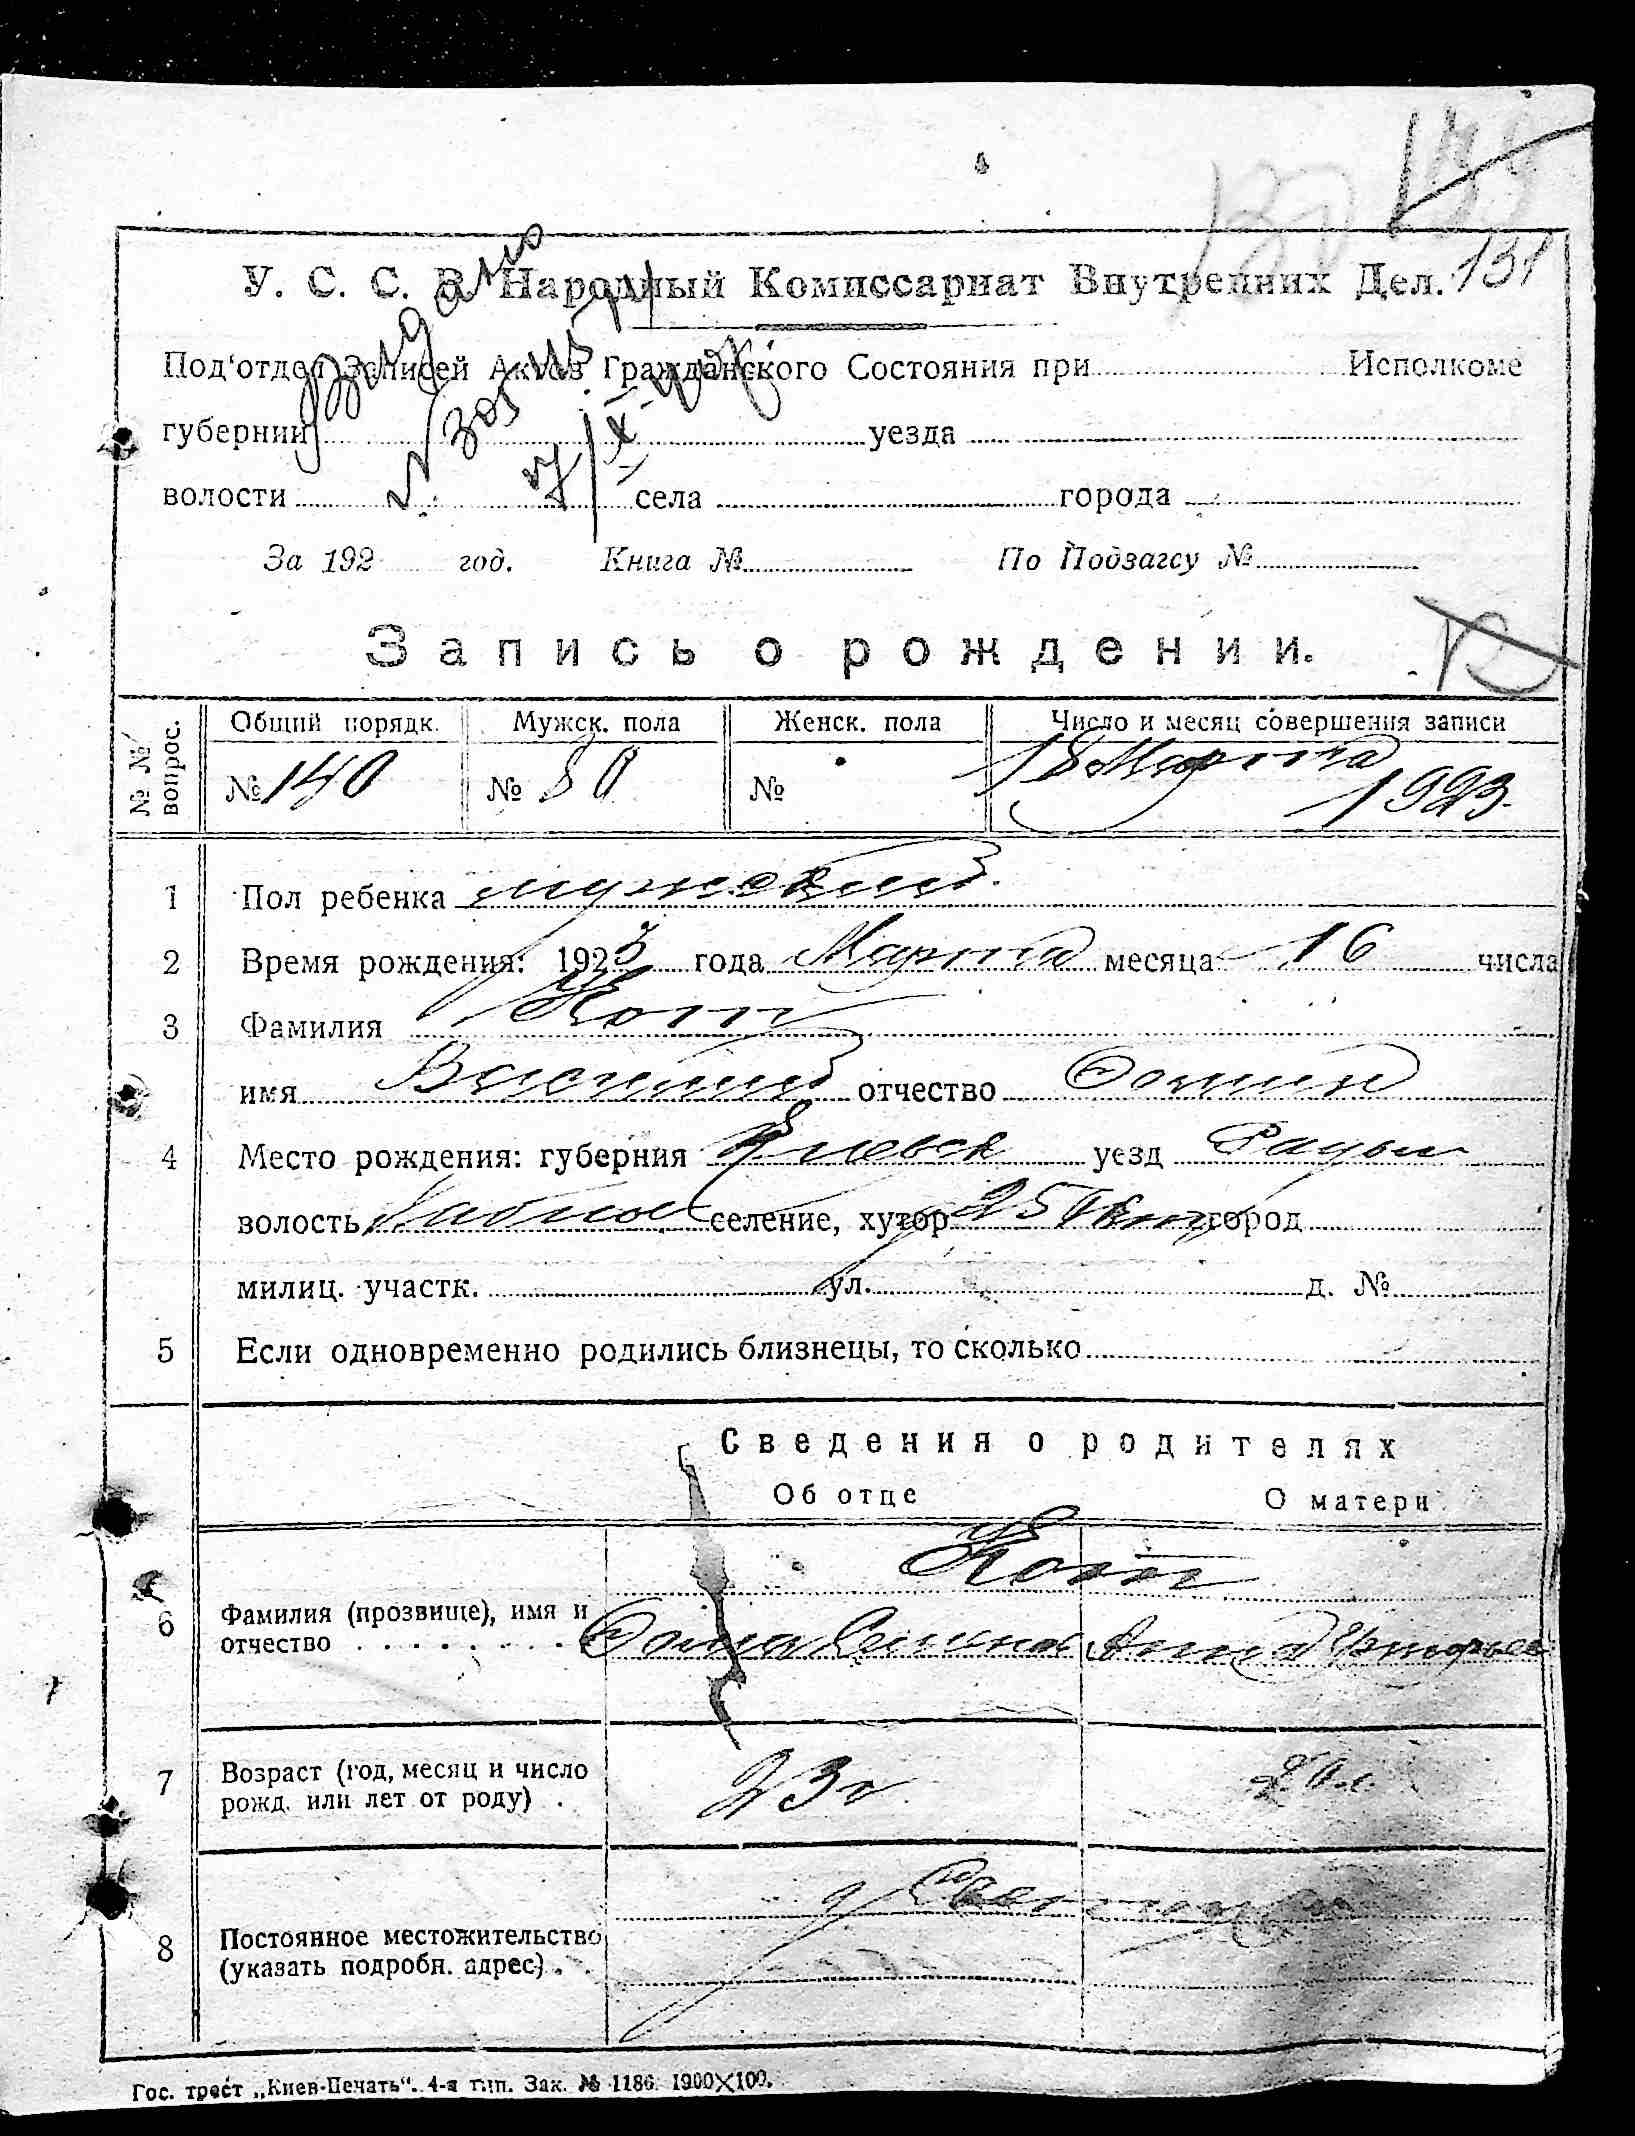 131
У. С. С. Р. Народный Комиссариат Внутренних Дел.
Под'отдел Записей Актов Гражданского Состояния при Исполкоме
губернии уезда
волости села города
За 192 год. Книга № По Подзагсу №
Запись о рождении.
№ № вопрос. Общий порядк. Мужск. пола Женск. пола Число и месяц совершения записи
№ 140 № 80 № 18 Марта 1923.
1 Пол ребенка мужской.
2 Время рождения: 1923 года Марта месяца 16 числа
3 Фамилия Кот
имя Василий отчество Фомин
4 Место рождения: губерния Киевск уезд
волость селение, хутор город
милиц. участк. ул. д. №
5 Если одновременно родились близнецы, то сколько
Сведения о родителях
Об отце О матери
Кот
6 Фамилия (прозвище), имя и отчество Фома Анна
7 Возраст (год, месяц и число рожд. или лет от роду) . 23
8 Постоянное местожительство (указать подробн. адрес) . .
Гос. трест „Киев-Печать". 4-я тип. Зак. № 1186. 1900×100.